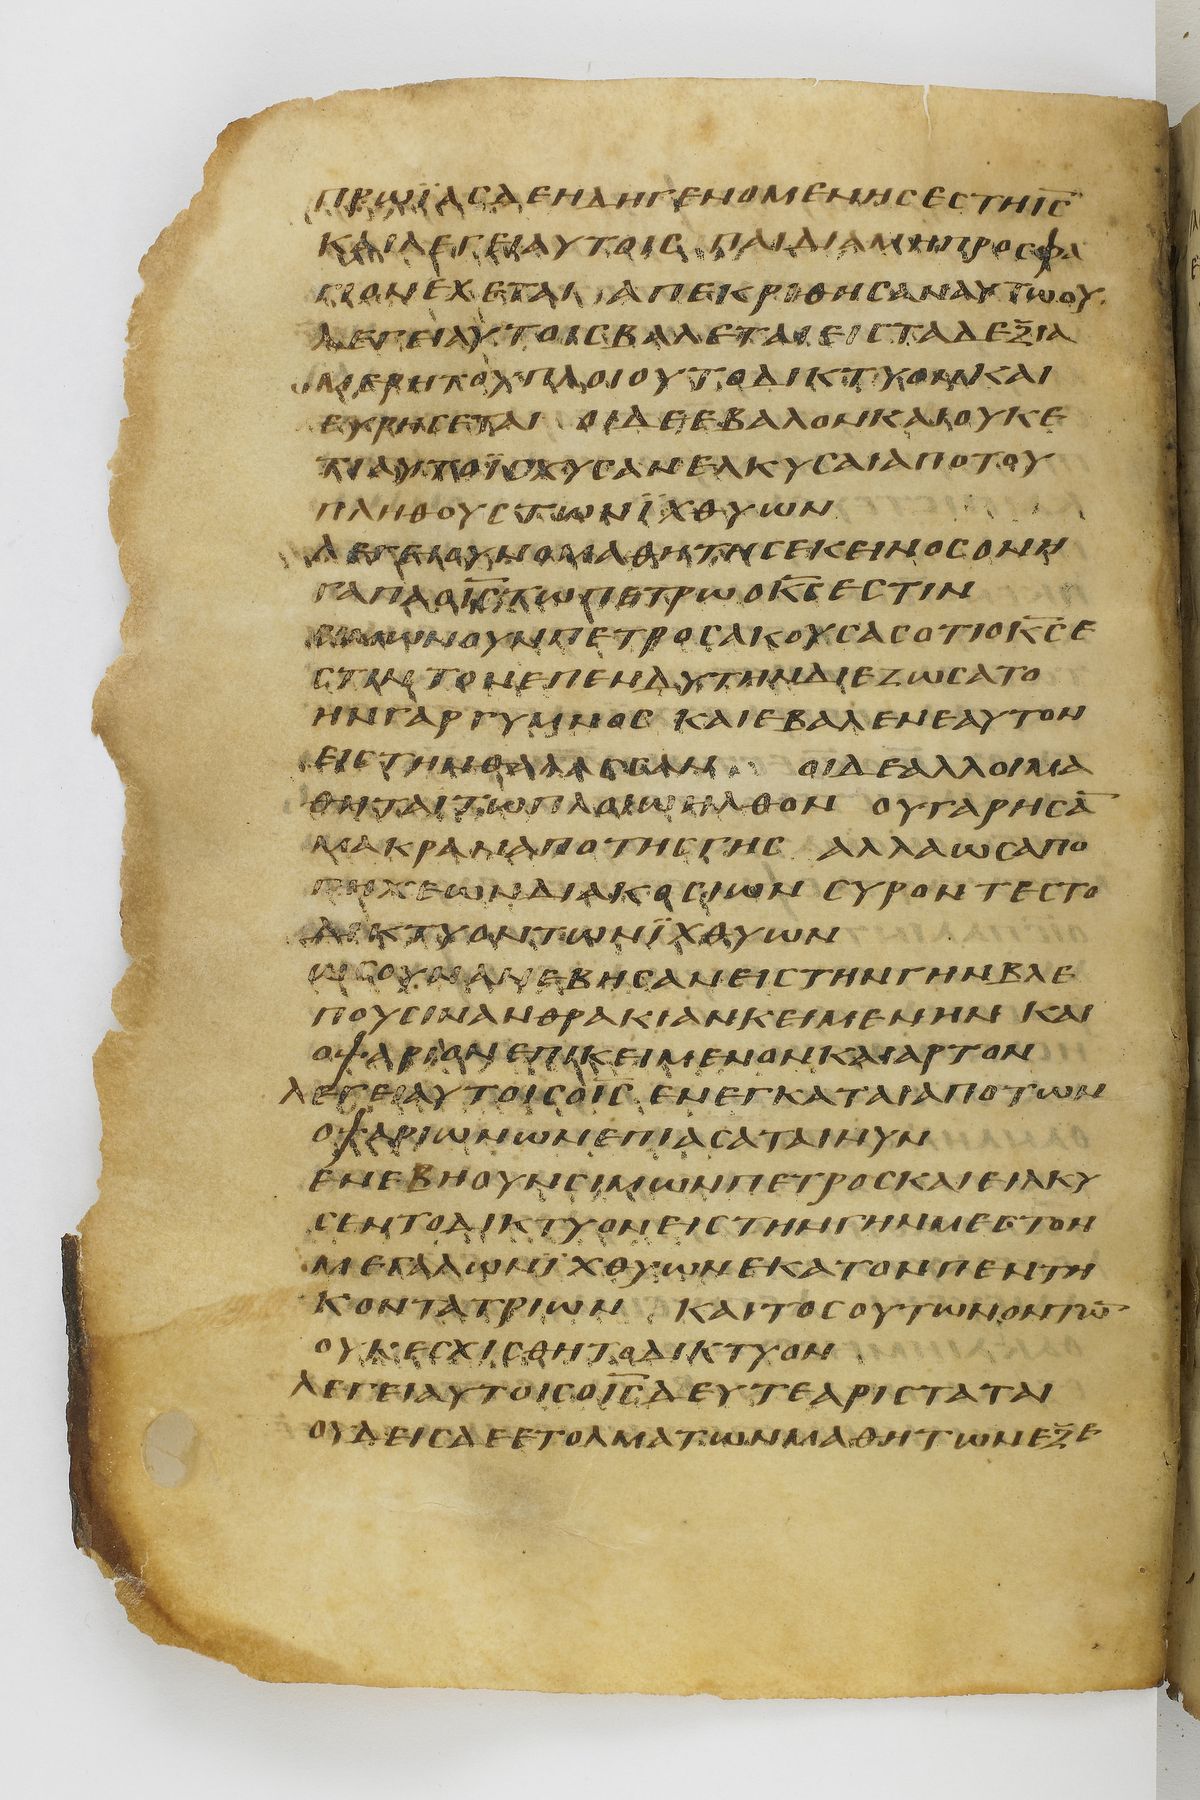 πρωϊασδεηδηγενομενησεστηι̅σ̅
καιλεγειαυτοισ παιδιαμηπροσφα
γιονεχεται απεκριθησαναυτωου
λεγειαυτοισβαλεταιεισταδεξια
μερητουπλοιουτοδικτυονκαι
ευρησεται οιδεεβαλονκαιουκε
τιαυτοϊσχυσανελκυσαιαποτου
πληθουστωνϊχθυων
λεγειουνομαθητησεκεινοσονη
γαπαοι̅σ̅τωπετρωοκ̅σ̅εστιν
σιμωνουνπετροσακουσασοτιοκ̅σ̅ε
στιν τονεπενδυτηνδιεζωσατο
ηνγαργυμνοσ καιεβαλενεαυτον
ειστηνθαλασσαν οιδεαλλοιμα
θηταιτωπλοιωηλθον ουγαρησα̅
μακραναποτησγησ αλλαωσαπο
πηχεωνδιακοσιων συροντεστο
δικτυοντωνϊχθυων
ωσουνανεβησανειστηνγηνβλε
πουσινανθρακιανκειμενην και
οψαριονεπικειμενονκαιαρτον
λεγειαυτοισοι̅σ̅ ενεγκαταιαποτων
οψαριωνωνεπιασαταινυν
ενεβηουνσιμωνπετροσκαιειλκυ
σεντοδικτυονειστηνγηνμεστον
μεγαλωνϊχθυωνεκατονπεντη
κοντατριων καιτοσουτωνοντω̅
ουκεσχισθητοδικτυον
λεγειαυτοισοι̅σ̅δευτεαριστατai
ουδεισδεετολματωνμαθητωνεξε